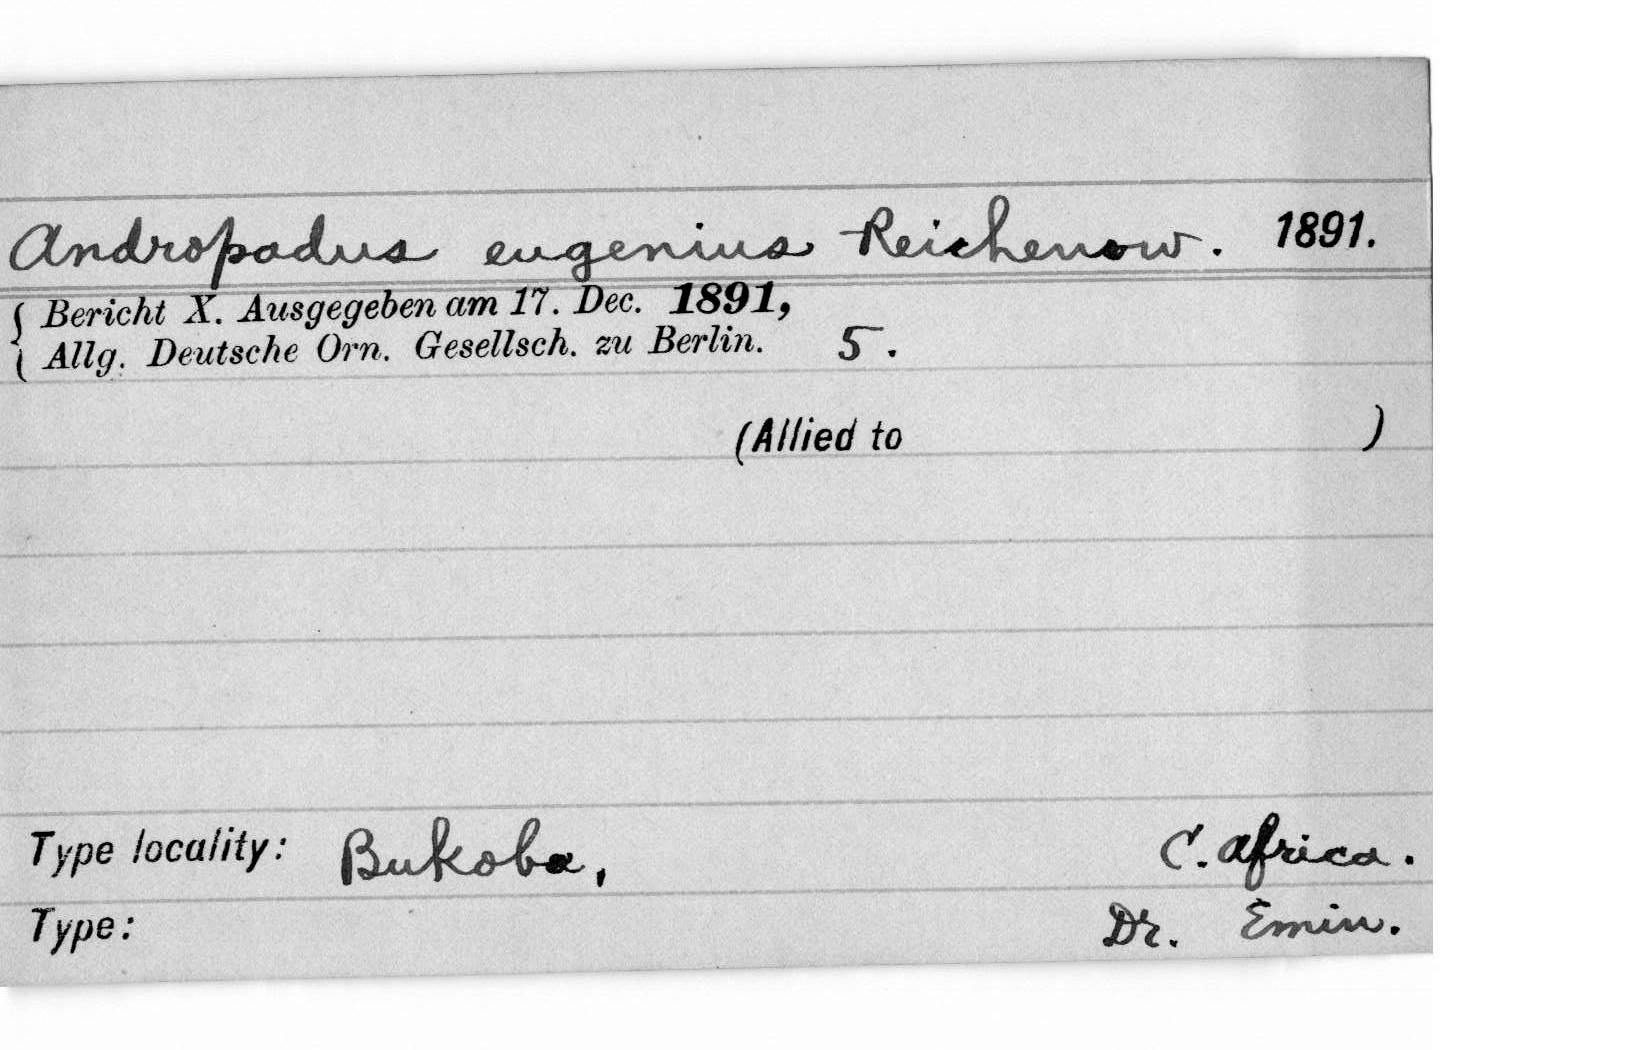 Andropadus eugenius Reichenow. 1891.
Bericht X. Ausgegeben am 17. Dec. 1891,
Allg. Deutsche Orn. Gesellsch. zu Berlin. 5.
(Allied to )
Type locality: Bukoba, C. Africa.
Type: Dr. Emin.